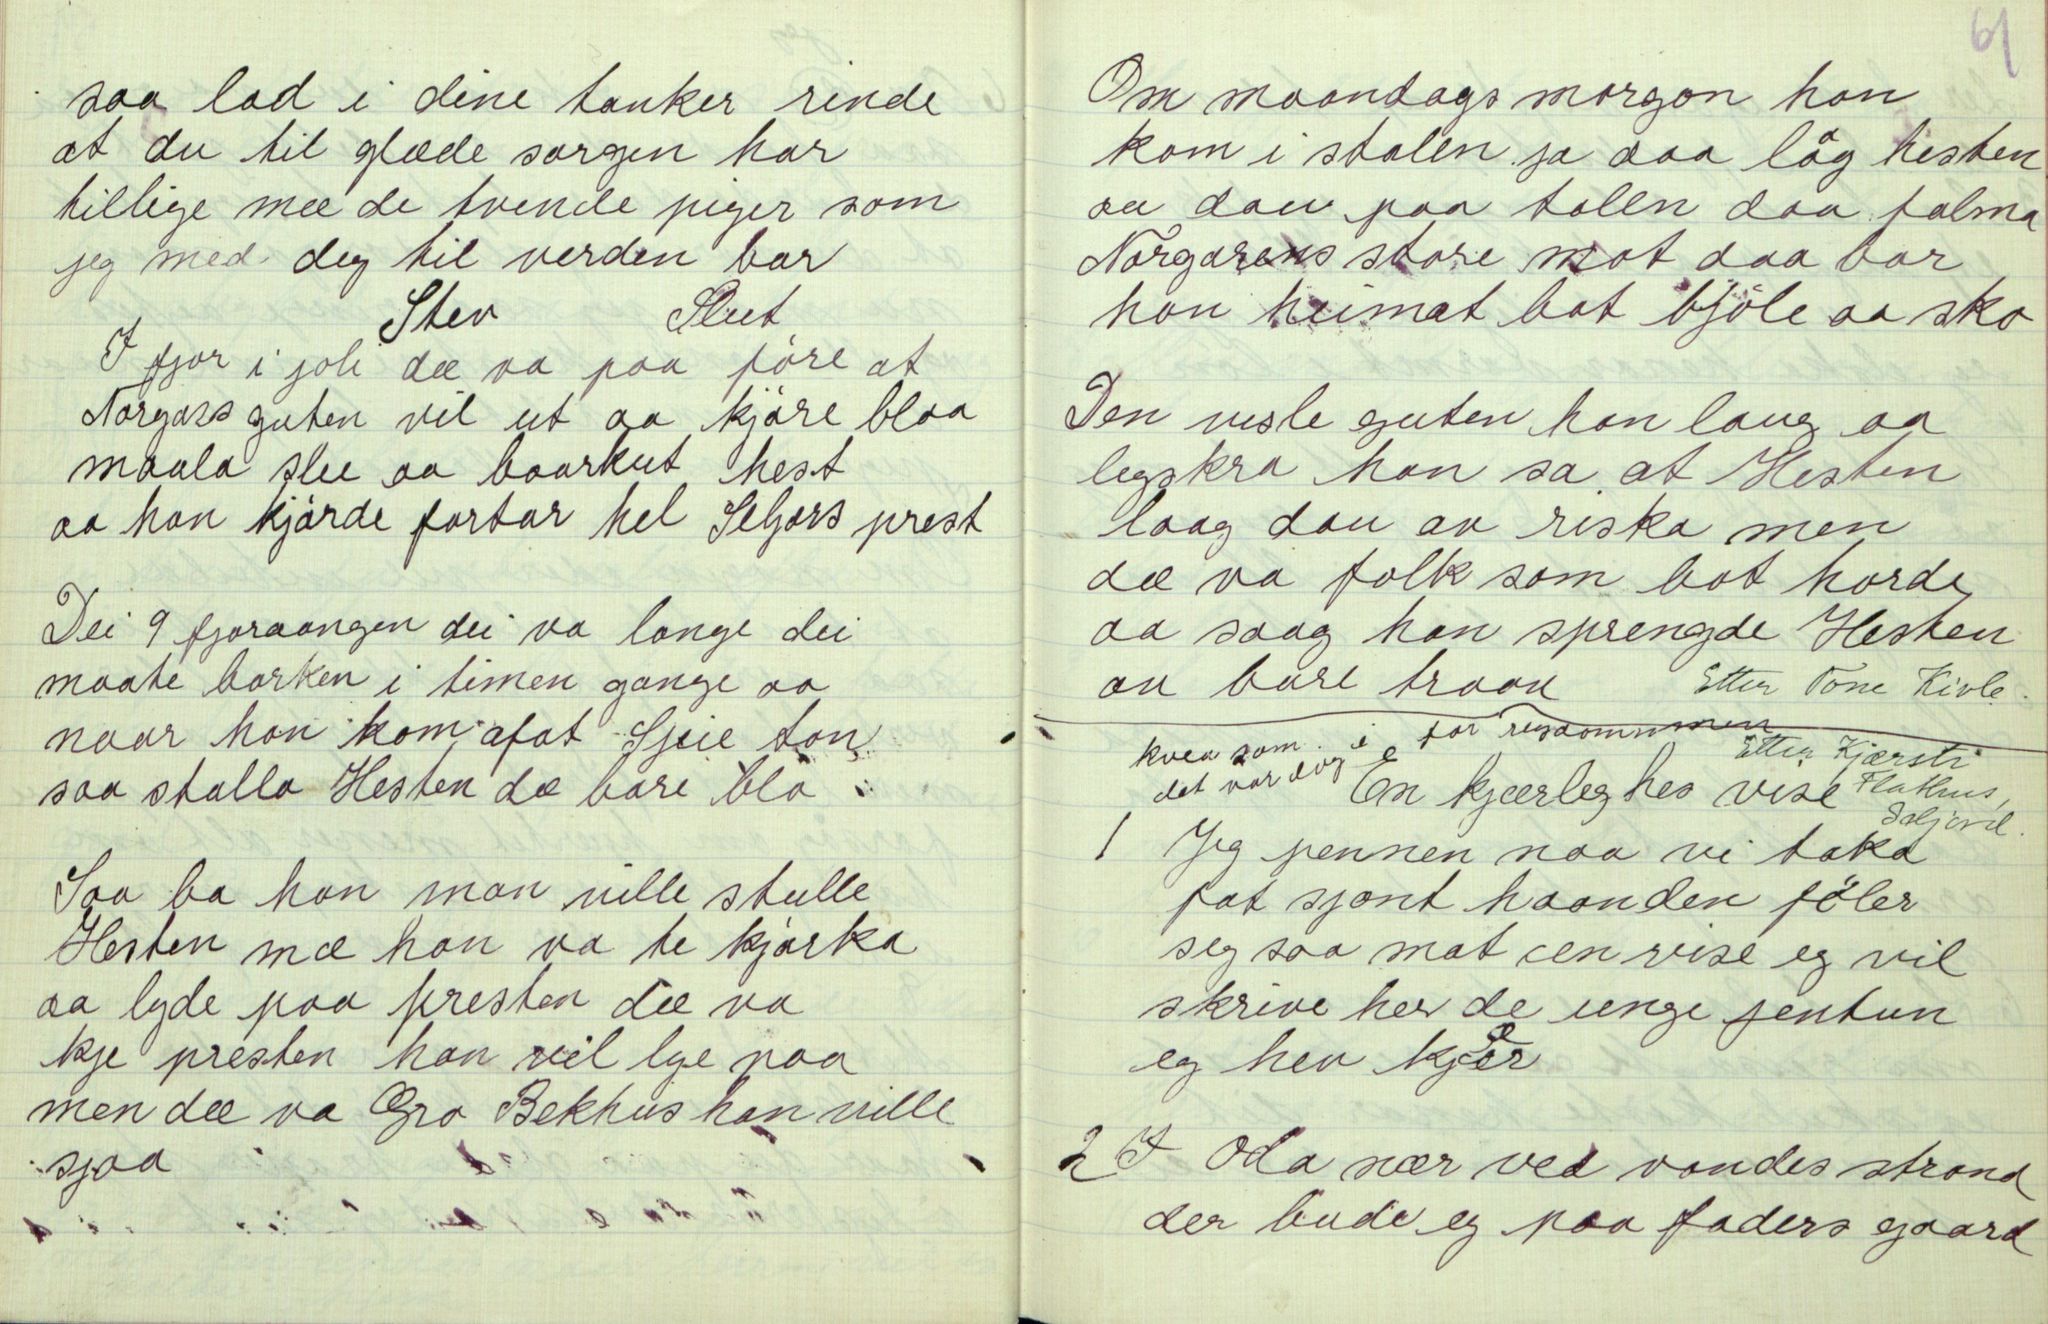 saa lad i dine tanker rinde
at du til glæde sorgen har
tillige mæ de tvende piger som
jeg med deg til verden bar
Stev Slut
I fjor i joli dæ va paa føre at
Norgars guten vil ut aa kjöre blaa
maala slee aa baarkut hest
aa han kjörde fortar hel Seljors prest
Dei 9 fjoraangen dei va lange dei
maate barken i timen gange aa
naar han kom afat Sjeie ton
saa stalla Hesten dæ bare bla
Saa ba han man ville stulle
Hesten mæ han va te kjørka
aa lyde paa presten dæ va
kje presten han vil lye paa
men dæ va Gro Bekhus han ville
sjaa
61
Om maandags morgon han
kom i stalen ja daa låg hesten
au dau paa talen daa falma
Norgarens store mot daa bar
han heimat bot kjöle aa sko
Den vesle guten han laug aa
legskra han sa at Hesten
laag dau av riska men
dæ va folk som bot horde
aa saag han sprengde Hesten
av bare traau Etter Tone Kivle.
kvea som det var dag i for
Etter Kjærsti Flathus, Seljord.
En kjærleg hes vise
1 Jeg pennen naa vi taka
fat sjønt haanden föler
seg saa mat en vise eg vil
skrive her de unge jentun
eg hev kjær
2 I Oda nær ved vandes strand
der bude eg paa faders gaard